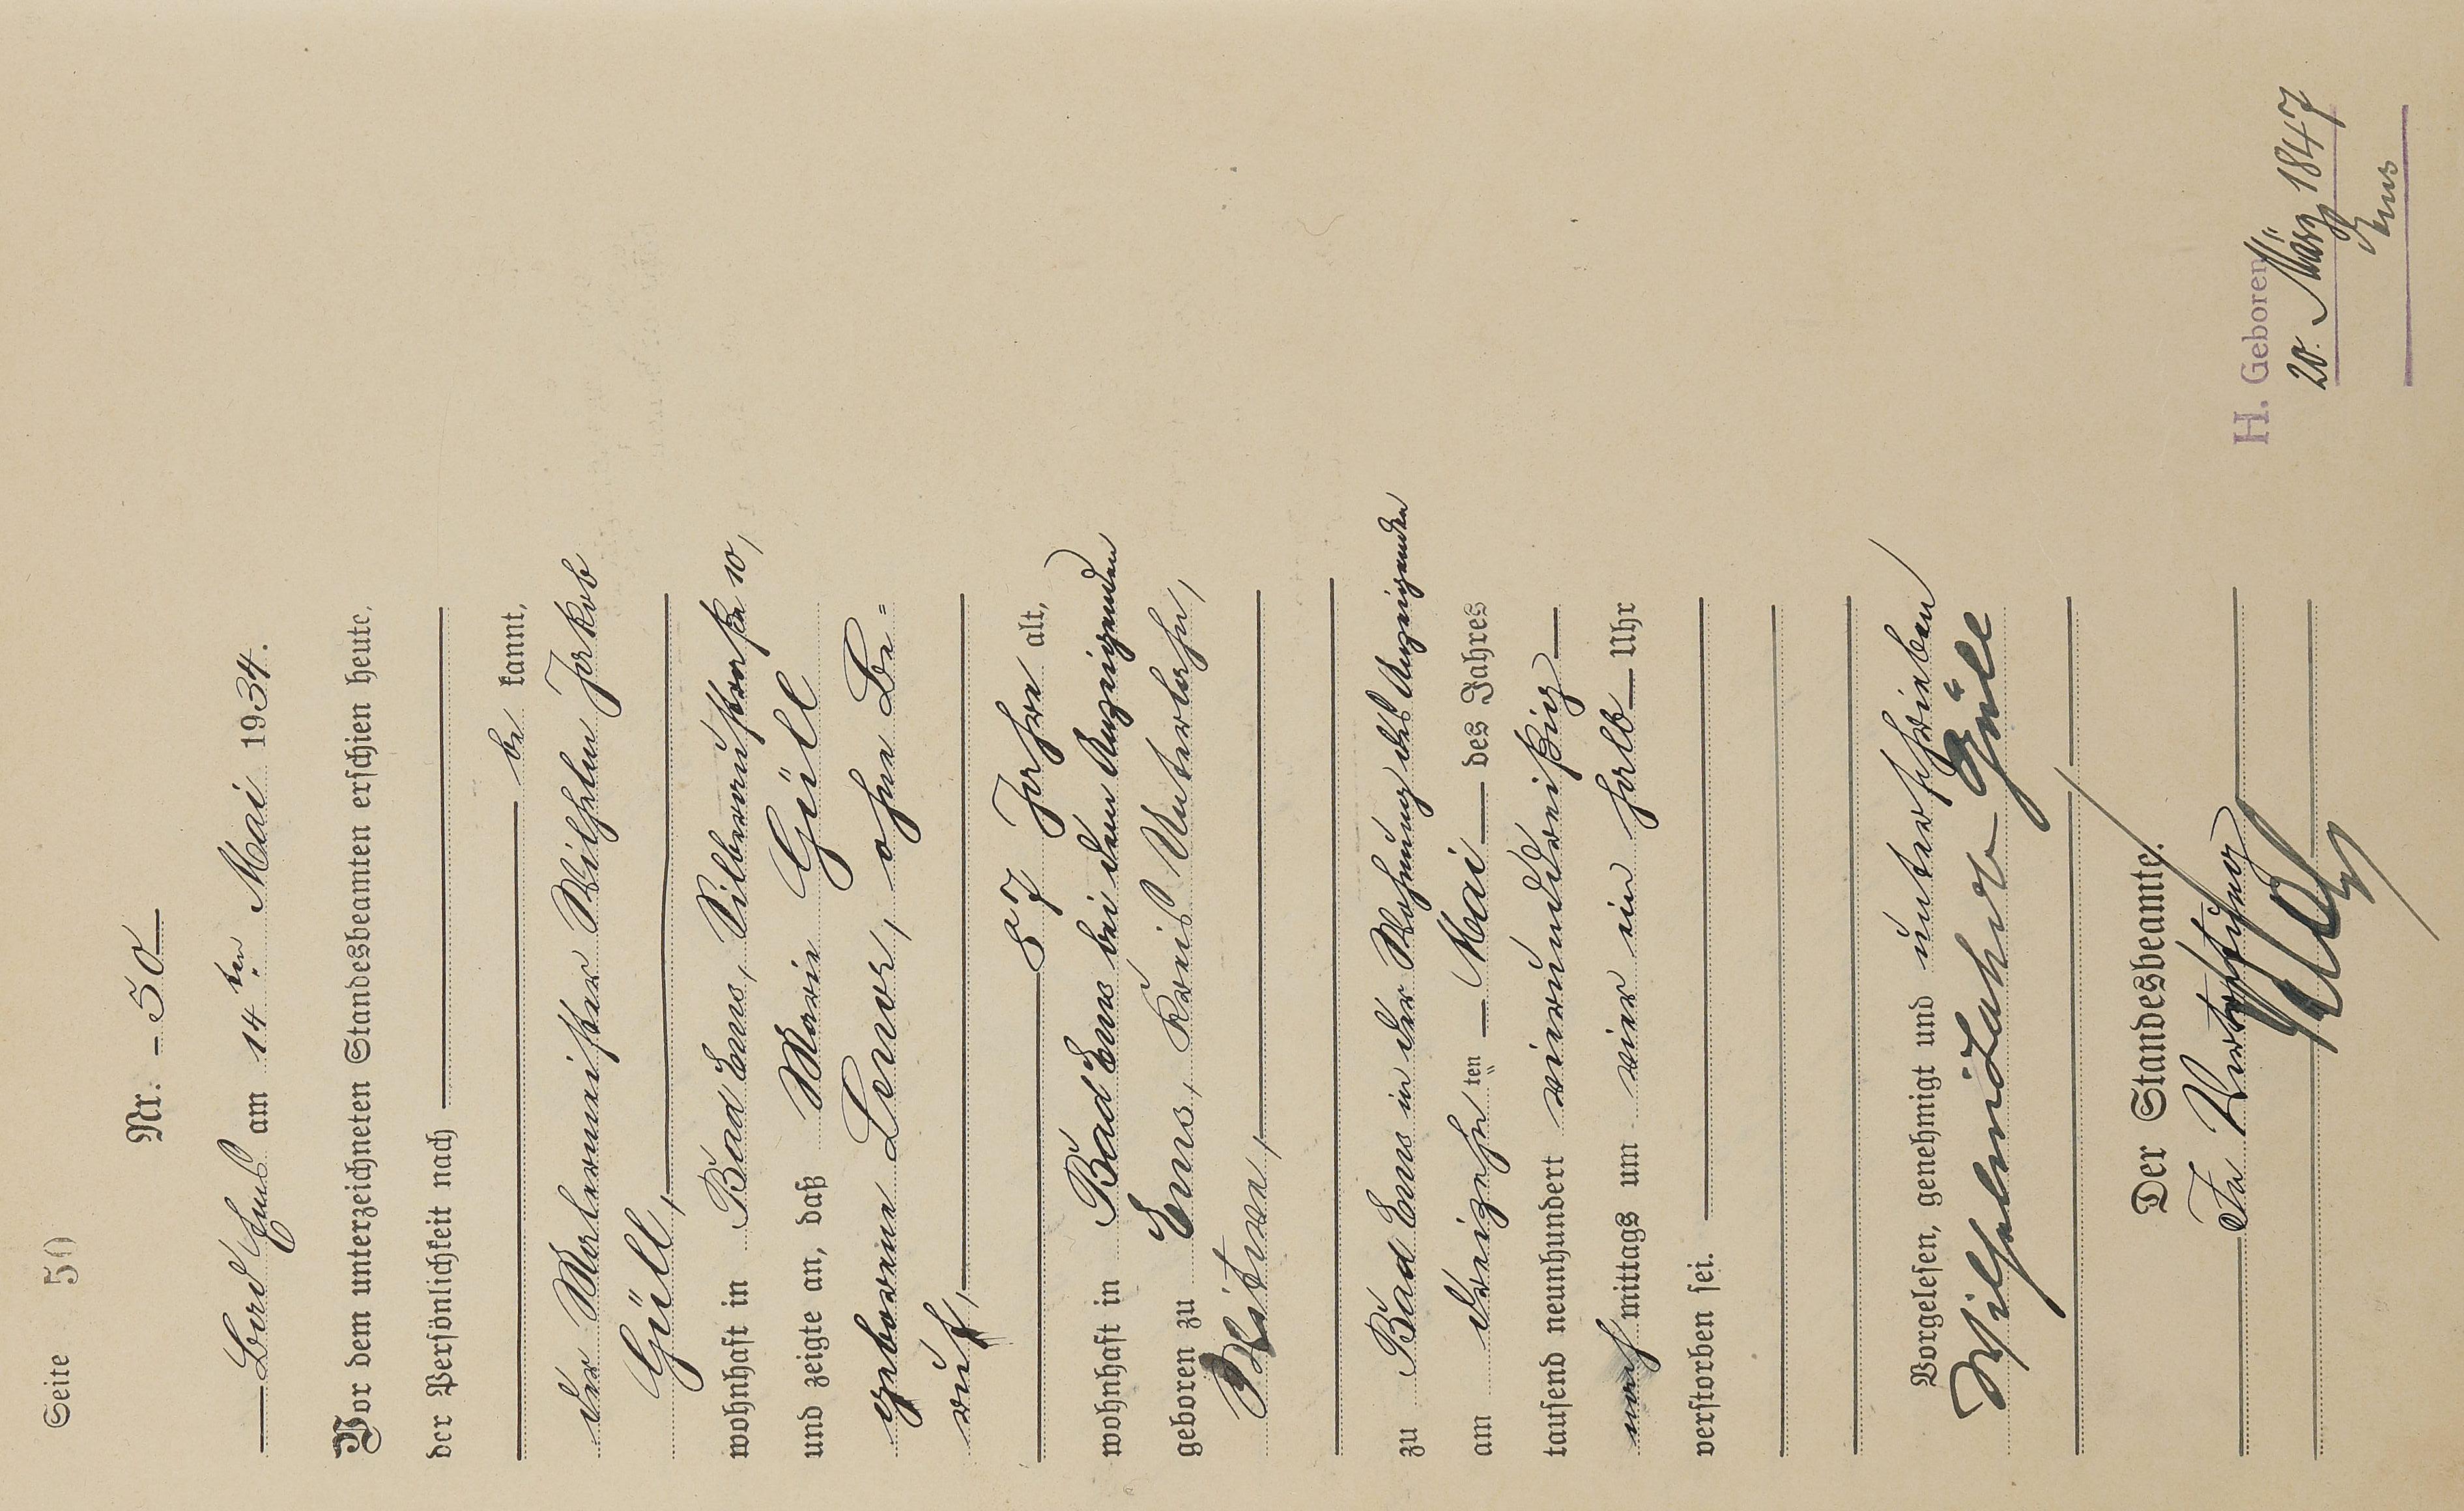 Seite 50
Nr. 50
Bad Ems am 14ten Mai 1934.
Vor dem unterzeichneten Standesbeamten erschien heute,
der Persönlichkeit nach
be kannt,
der Malermeister Wilhelm Jakob
Güll,
wohnhaft in Bad Ems, Silberaustraße 10,
und zeigte an, daß Marie Güll
geborene Lenz, ohne Be=
ruf,
87 Jahre alt,
wohnhaft in Bad Ems bei dem Anzeigenden
geboren zu Ems, Kreis Unterlahn,
Witwe,
zu Bad Ems in der Wohnung des Anzeigenden
am dreizehn ten Mai des Jahres
tausend neunhundert vierunddreißig
nach mittags um vier ein halb Uhr
verstorben sei.
Vorgelesen, genehmigt und unterschrieben
Wilhelm Jakob Güll
Der Standesbeamte.
In Vertretung
H. Geboren
20. März 1847
Ems